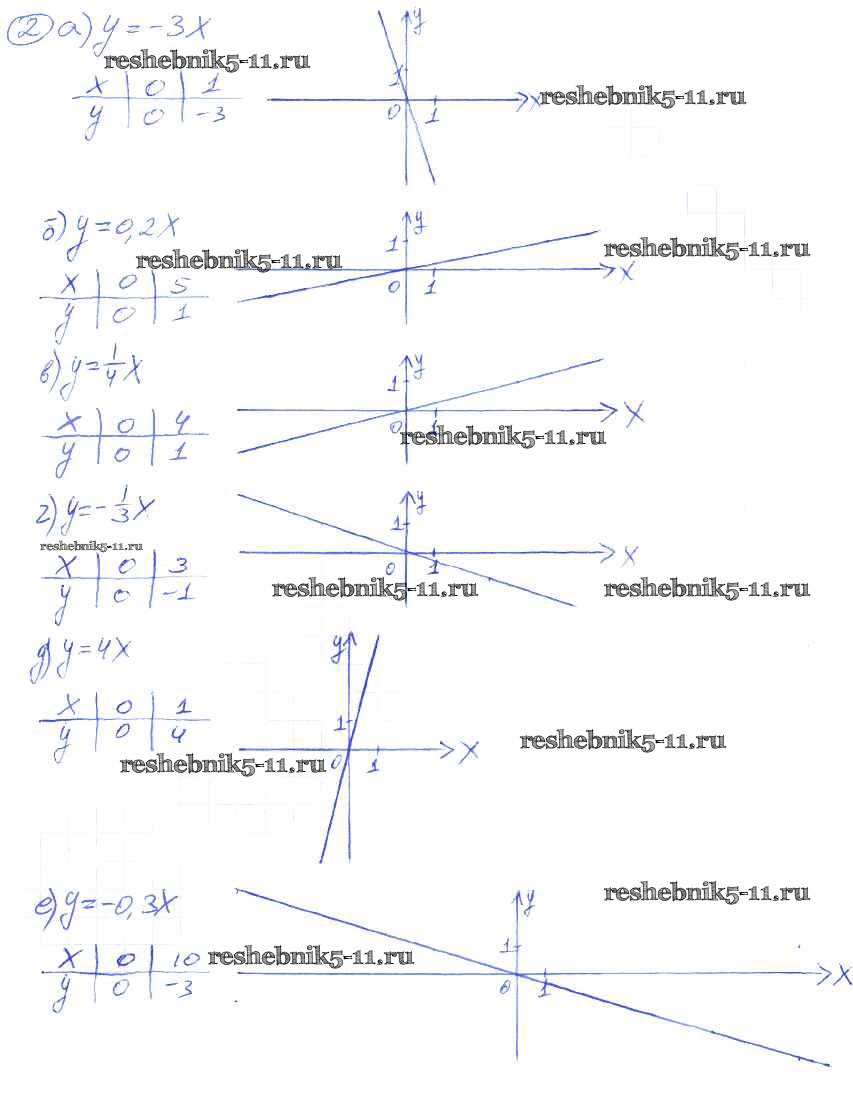 2 а) y = -3x
y
reshebnik5-11.ru
x 0 1
1
x
reshebnik5-11.ru
y 0 -3
0 1
б) y = 0,2x
y
1
reshebnik5-11.ru
reshebnik5-11.ru
x
x 0 5
0 1
y 0 1
в) y = 1/4 x
y
1
x 0 4
x
0 1
reshebnik5-11.ru
y 0 1
г) y = - 1/3 x
y
1
reshebnik5-11.ru
x
x 0 3
0 1
reshebnik5-11.ru
reshebnik5-11.ru
y 0 -1
д) y = 4x
y
x 0 1
1
y 0 4
reshebnik5-11.ru
0 1
x
reshebnik5-11.ru
е) y = -0,3x
y
reshebnik5-11.ru
1
x 0 10
reshebnik5-11.ru
x
y 0 -3
0 1